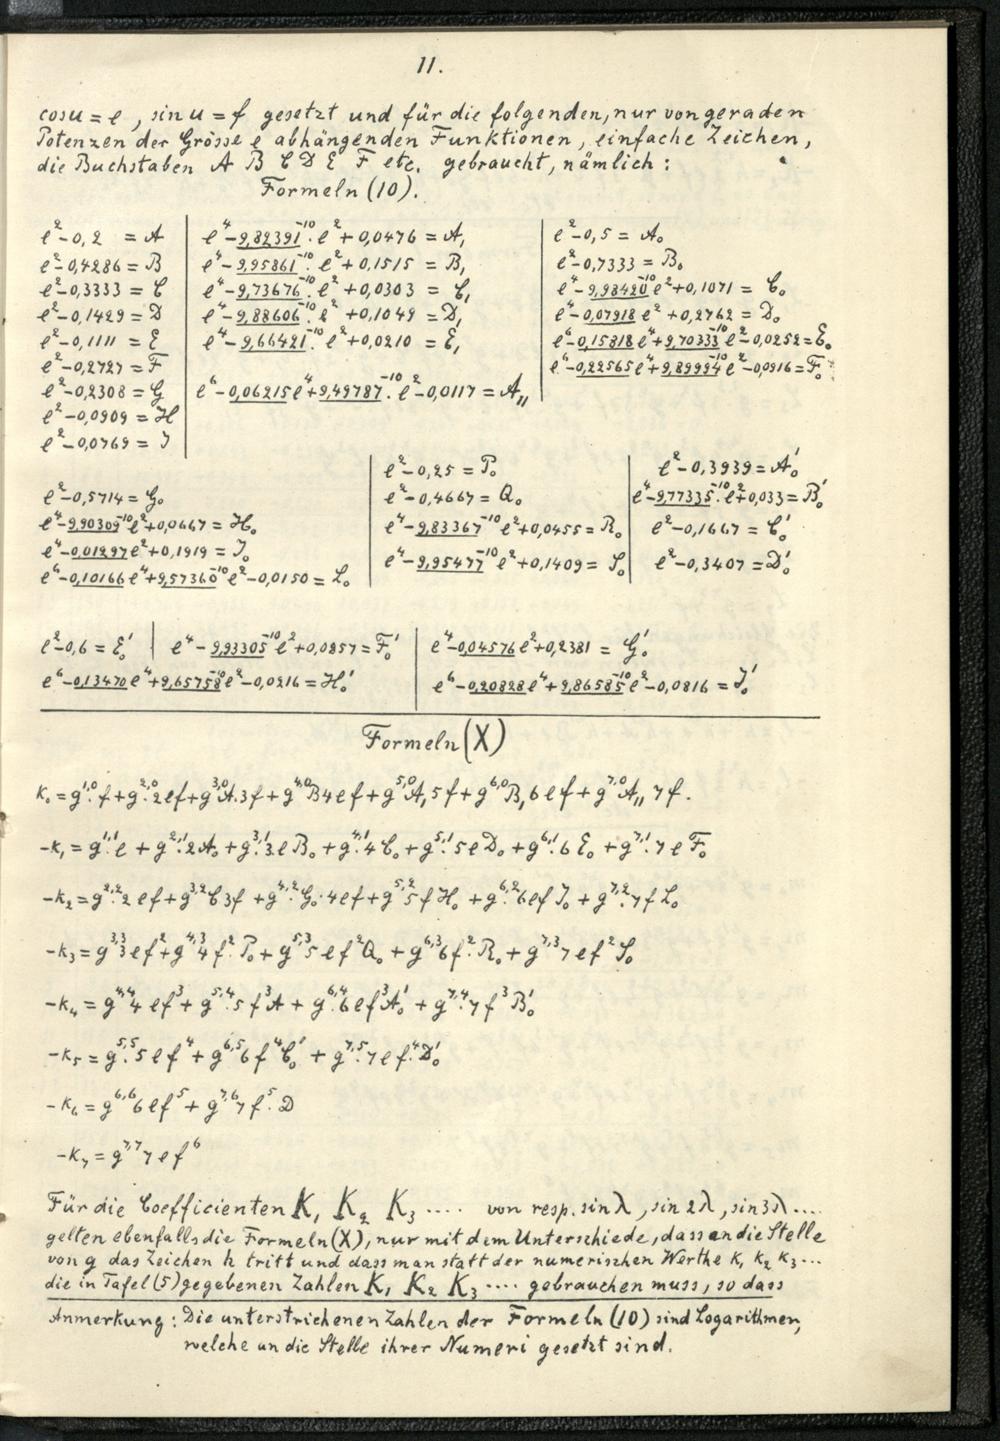 11.
cos u = e, sin u = f gesetzt und für die folgenden, nur von geraden
Potenzen der Grösse e abhängenden Funktionen, einfache Zeichen,
die Buchstaben A B C D E F etc. gebraucht, nämlich:
Formeln (10).
e²-0,2 = A
e²-0,4286 = B
e²-0,3333 = C
e²-0,1429 = D
e²-0,1111 = E
e²-0,2727 = F
e²-0,2308 = G
e²-0,0909 = H
e²-0,0769 = J
e⁴-9,82391⁻¹⁰·e²+0,0476 = A₁
e⁴-9,95861⁻¹⁰·e²+0,1515 = B₁
e⁴-9,73676⁻¹⁰·e²+0,0303 = C₁
e⁴-9,88606⁻¹⁰·e²+0,1049 = D₁
e⁴-9,66421⁻¹⁰·e²+0,0210 = E₁
e⁶-0,06215e⁴+9,49787⁻¹⁰·e²-0,0117 = A₁₁
e²-0,5 = A₀
e²-0,7333 = B₀
e⁴-9,98420⁻¹⁰e²+0,1071 = C₀
e⁴-0,07918e²+0,2762 = D₀
e⁶-0,15818e⁴+9,70333⁻¹⁰e²-0,0252 = E₀
e⁶-0,22565e⁴+9,89994⁻¹⁰e²-0,0916 = F₀
e²-0,5714 = G₀
e⁴-9,90309⁻¹⁰e²+0,0667 = H₀
e⁴-0,01297e²+0,1919 = J₀
e⁶-0,10166e⁴+9,57360⁻¹⁰e²-0,0150 = L₀
e²-0,25 = P₀
e²-0,4667 = Q₀
e⁴-9,83367⁻¹⁰e²+0,0455 = R₀
e⁴-9,95477⁻¹⁰e²+0,1409 = S₀
e²-0,3939 = A₀'
e⁴-9,77335⁻¹⁰·e²+0,033 = B₀'
e²-0,1667 = C₀'
e²-0,3407 = D₀'
e²-0,6 = E₀'
e⁴-9,93305⁻¹⁰e²+0,0857 = F₀'
e⁴-0,04576e²+0,2381 = G₀'
e⁶-0,13470e⁴+9,65758⁻¹⁰e²-0,0216 = H₀'
e⁶-0,20828e⁴+9,86585⁻¹⁰e²-0,0816 = J₀'
Formeln (X)
K₀ = g¹·⁰·f+g²·⁰·2ef+g³·⁰A·3f+g⁴·⁰B4ef+g⁵·⁰A₁5f+g⁶·⁰B₁6ef+g⁷·⁰A₁₁7f.
-K₁ = g¹·¹·e+g²·¹·2A₀+g³·¹·3eB₀+g⁴·¹·4C₀+g⁵·¹·5eD₀+g⁶·¹·6E₀+g⁷·¹·7eF₀
-K₂ = g²·²·2ef+g³·²C3f+g⁴·²·G₀·4ef+g⁵·²5fH₀+g⁶·²·6efJ₀+g⁷·²·7fL₀
-K₃ = g³·³3ef²+g⁴·³4f²·P₀+g⁵·³5ef²Q₀+g⁶·³6f²·R₀+g⁷·³7ef²S₀
-K₄ = g⁴·⁴4ef³+g⁵·⁴·5f³A+g⁶·⁴·6ef³A₀'+g⁷·⁴·7f³B₀'
-K₅ = g⁵·⁵·5ef⁴+g⁶·⁵6f⁴C₀'+g⁷·⁵·7ef⁴·D₀'
-K₆ = g⁶·⁶6ef⁵+g⁷·⁶7f⁵·D
-K₇ = g⁷·⁷7ef⁶
Für die Coefficienten K₁ K₂ K₃ .... von resp. sin λ, sin 2λ, sin 3λ ....
gelten ebenfalls die Formeln (X), nur mit dem Unterschiede, dass an die Stelle
von g das Zeichen h tritt und dass man statt der numerischen Werthe K₁ K₂ K₃...
die in Tafel (5) gegebenen Zahlen K₁ K₂ K₃ .... gebrauchen muss, so dass
Anmerkung: Die unterstrichenen Zahlen der Formeln (10) sind Logarithmen,
welche an die Stelle ihrer Numeri gesetzt sind.